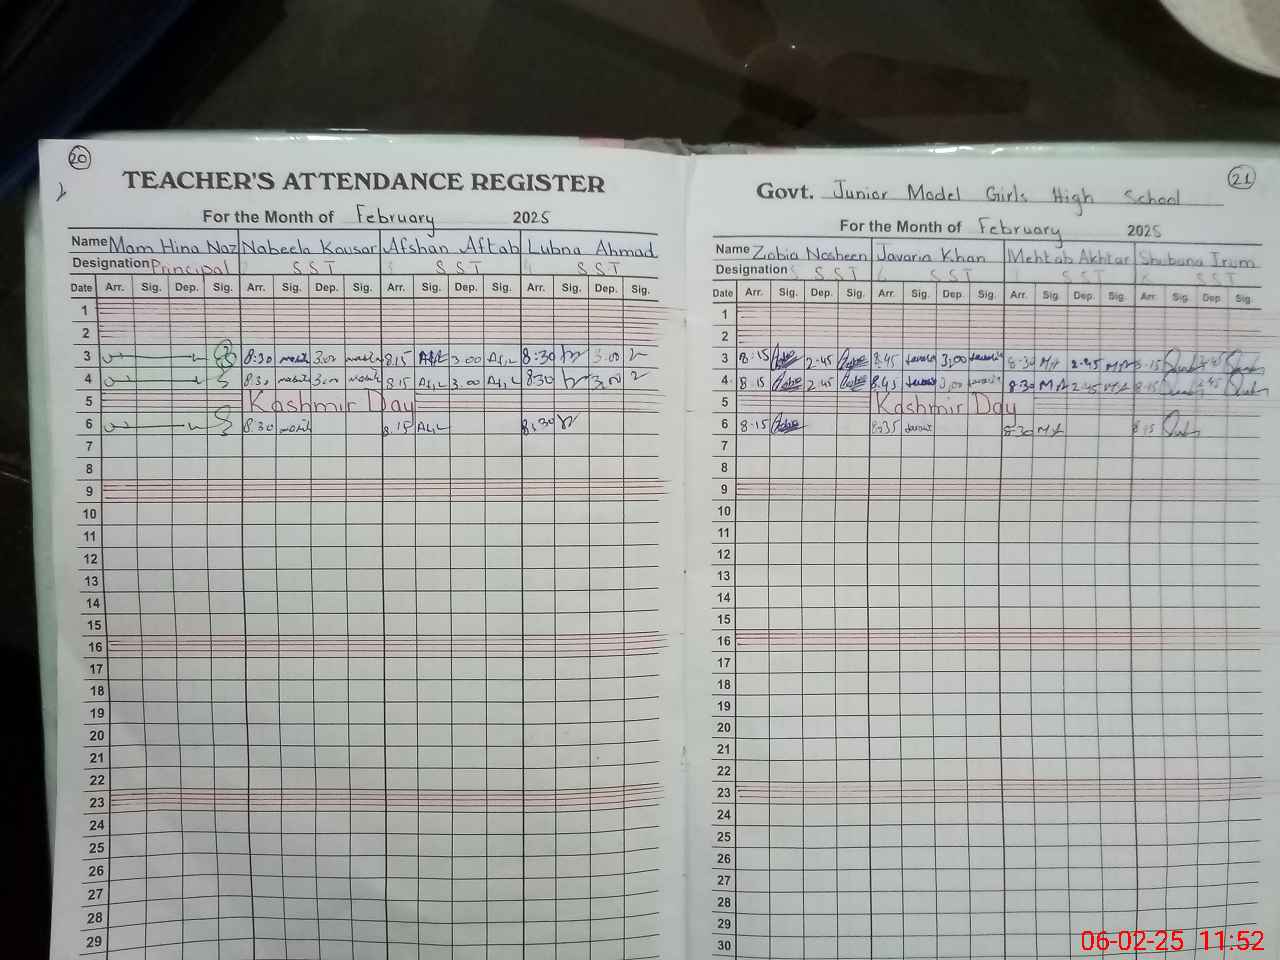 20
TEACHER'S ATTENDANCE REGISTER
For the Month of February 2025
Name Mam Hina Naz Nabeela Kousar Afshan Aftab Lubna Ahmad
Designation Principal SST SST SST
Date Arr. Sig. Dep. Sig. Arr. Sig. Dep. Sig. Arr. Sig. Dep. Sig. Arr. Sig. Dep. Sig.
1
2
3 8:30 3:00 8:15 3:00 8:30 3:00
4 8:30 3:00 8:15 3:00 8:30 3:00
5 Kashmir Day
6 8:30 8:15 8:30
7
8
9
10
11
12
13
14
15
16
17
18
19
20
21
22
23
24
25
26
27
28
29
21
Govt. Junior Model Girls High School
For the Month of February 2025
Name Zobia Nosheen Javaria Khan Mehtab Akhtar Shubana Irum
Designation SST SST SST SST
Date Arr. Sig. Dep. Sig. Arr. Sig. Dep. Sig. Arr. Sig. Dep. Sig. Arr. Sig. Dep. Sig.
1
2
3 8:15 2:45 8:45 3:00 8:30 MA 2:45 MA 8:15 2:45
4 8:15 2:45 8:45 3:00 8:30 MA 2:45 MA 8:15 2:45
5 Kashmir Day
6 8:15 8:35 8:30 MA 8:15
7
8
9
10
11
12
13
14
15
16
17
18
19
20
21
22
23
24
25
26
27
28
29
30
06-02-25 11:52